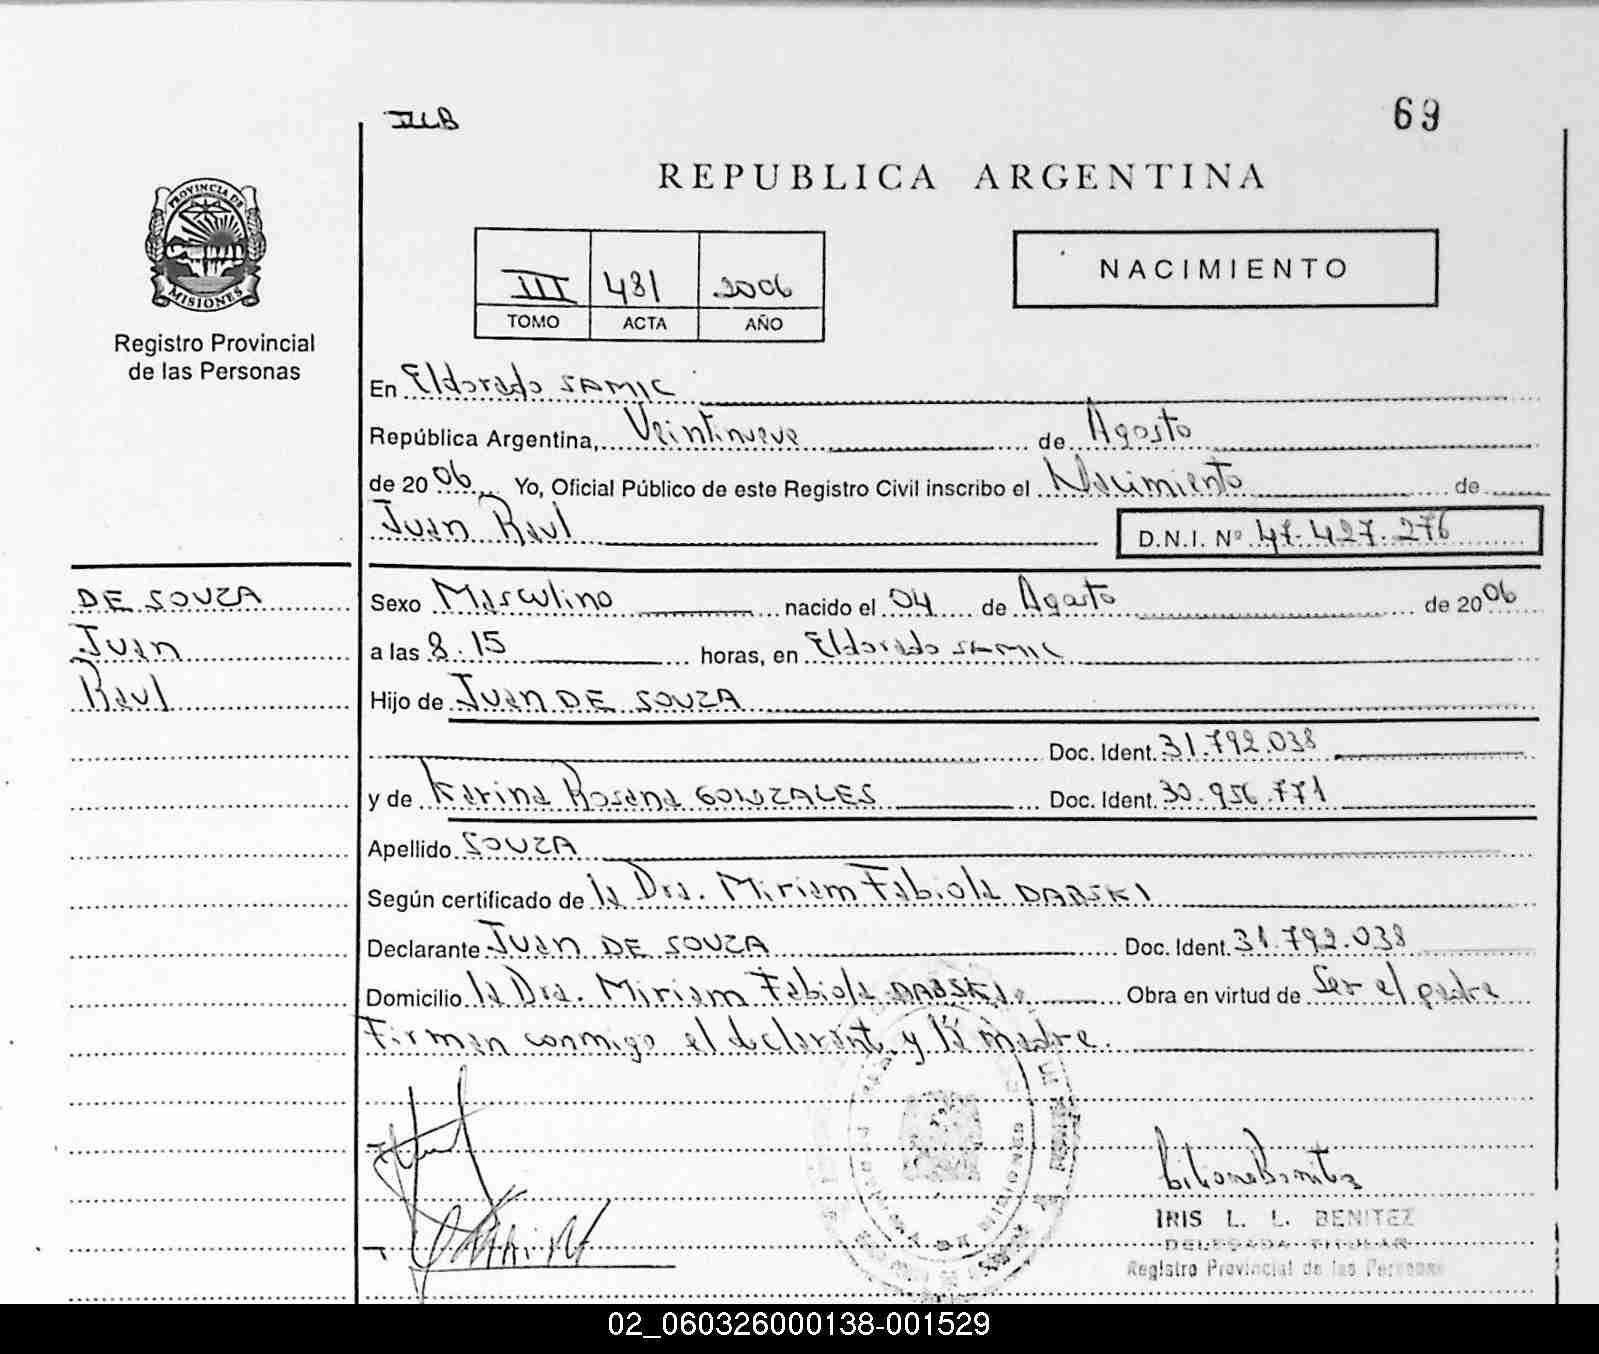 ILLB
69
REPUBLICA ARGENTINA
PROVINCIA DE
MISIONES
Registro Provincial
de las Personas
III 481 2006
TOMO ACTA AÑO
NACIMIENTO
En Eldorado SAMIC
República Argentina, Veintinueve de Agosto
de 2006 Yo, Oficial Público de este Registro Civil inscribo el Nacimiento de
Juan Raul D.N.I. Nº 47.427.276
DE SOUZA
Juan
Raul
Sexo Masculino nacido el 04 de Agosto de 2006
a las 8.15 horas, en Eldorado SAMIC
Hijo de Juan DE SOUZA
Doc. Ident. 31.792.038
y de Karina Rosana GONZALES Doc. Ident. 30.956.771
Apellido SOUZA
Según certificado de la Dra. Miriam Fabiola DABSKI
Declarante Juan DE SOUZA Doc. Ident. 31.792.038
Domicilio la Dra. Miriam Fabiola DABSKI Obra en virtud de Ser el padre
Firman conmigo el declarant. y la madre.
IRIS L. L. BENITEZ
DELEGADA TITULAR
Registro Provincial de las Personas
02_060326000138-001529